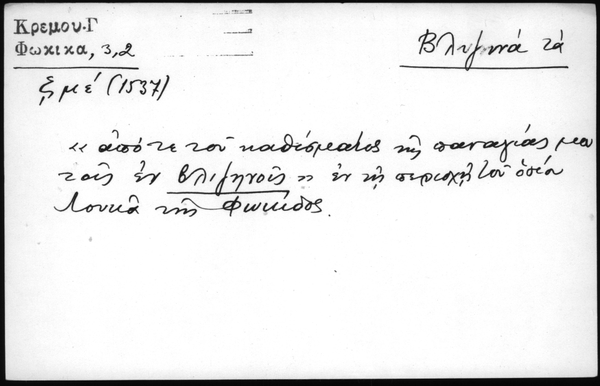 Κρεμου-Γ
Φωκικα, 3,2
Βλιμηνά τά
ξμέ (1537)
« ἀπό τε τοῦ καθίσματος τῆς παναγίας με
τοῖς ἐν Βλιμηνοῖς » ἐν τῇ περιοχῇ τοῦ ὁσίου
Λουκᾶ τῆς Φωκίδος.